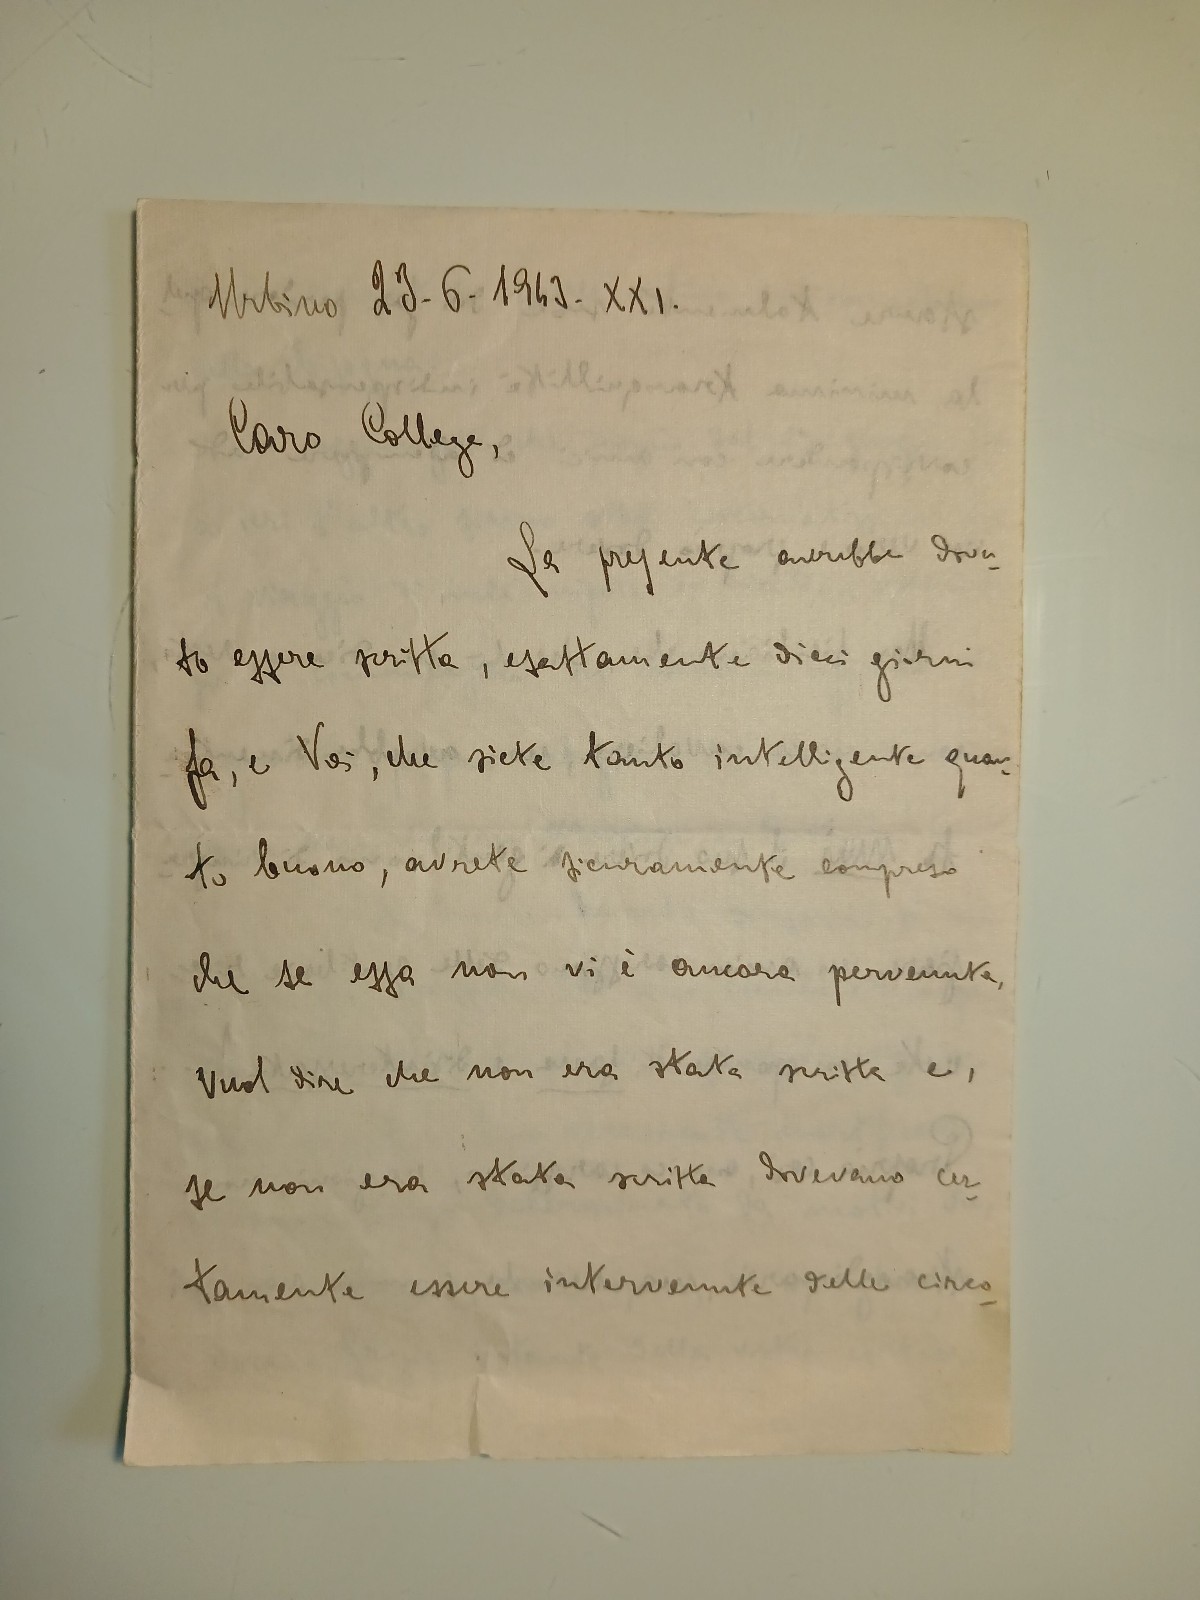 Urbino 23-6-1943-XXI.
Caro Collega,
La presente avrebbe dovu-
to essere scritta, esattamente dieci giorni
fa, e Voi, che siete tanto intelligente quan-
to buono, avrete sicuramente compreso
che se essa non vi è ancora pervenuta,
vuol dire che non era stata scritta e,
se non era stata scritta dovevano cer-
tamente essere intervenute delle circo-